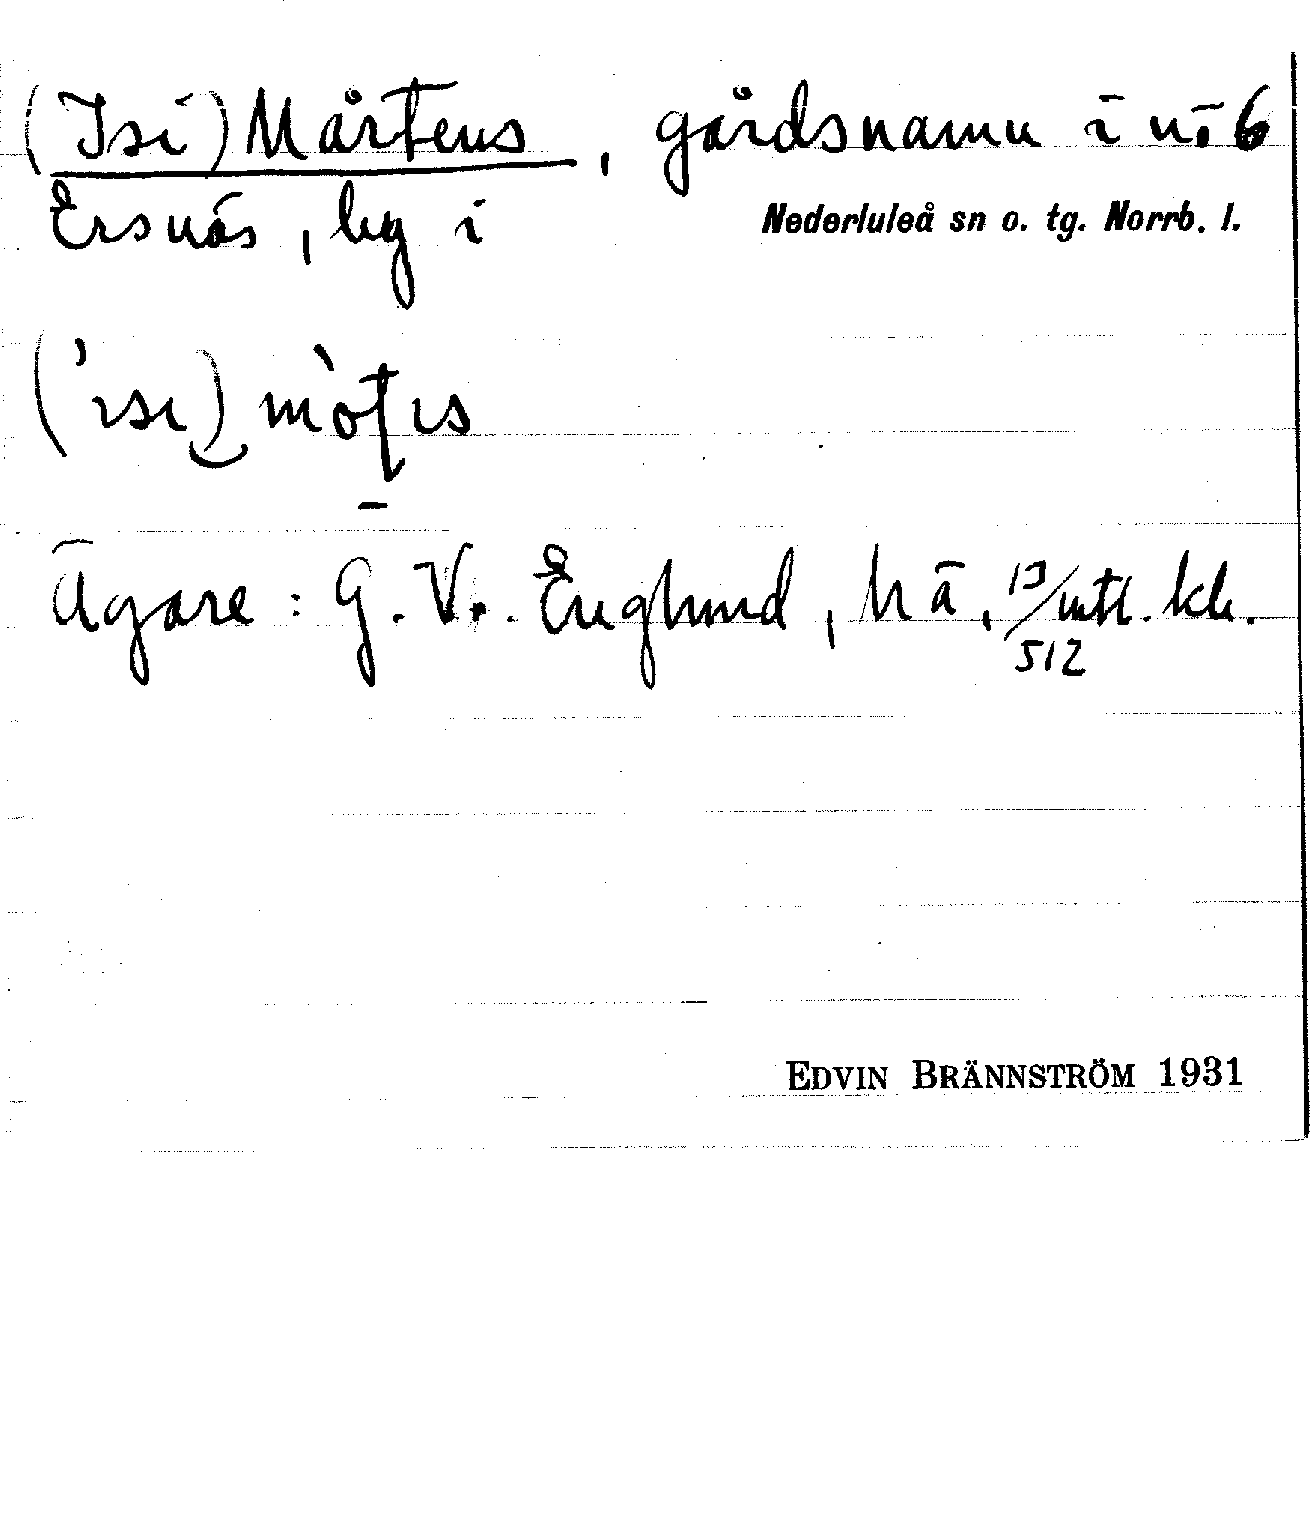 (Isi) Mårtens, gårdsnamn i nr 6
Ersnäs, by i Nederluleå sn o. tg. Norrb. l.
('ısı) mò
Ägare: G. V. Englund, hä, 13/512 mtl. kh.
EDVIN BRÄNNSTRÖM 1931